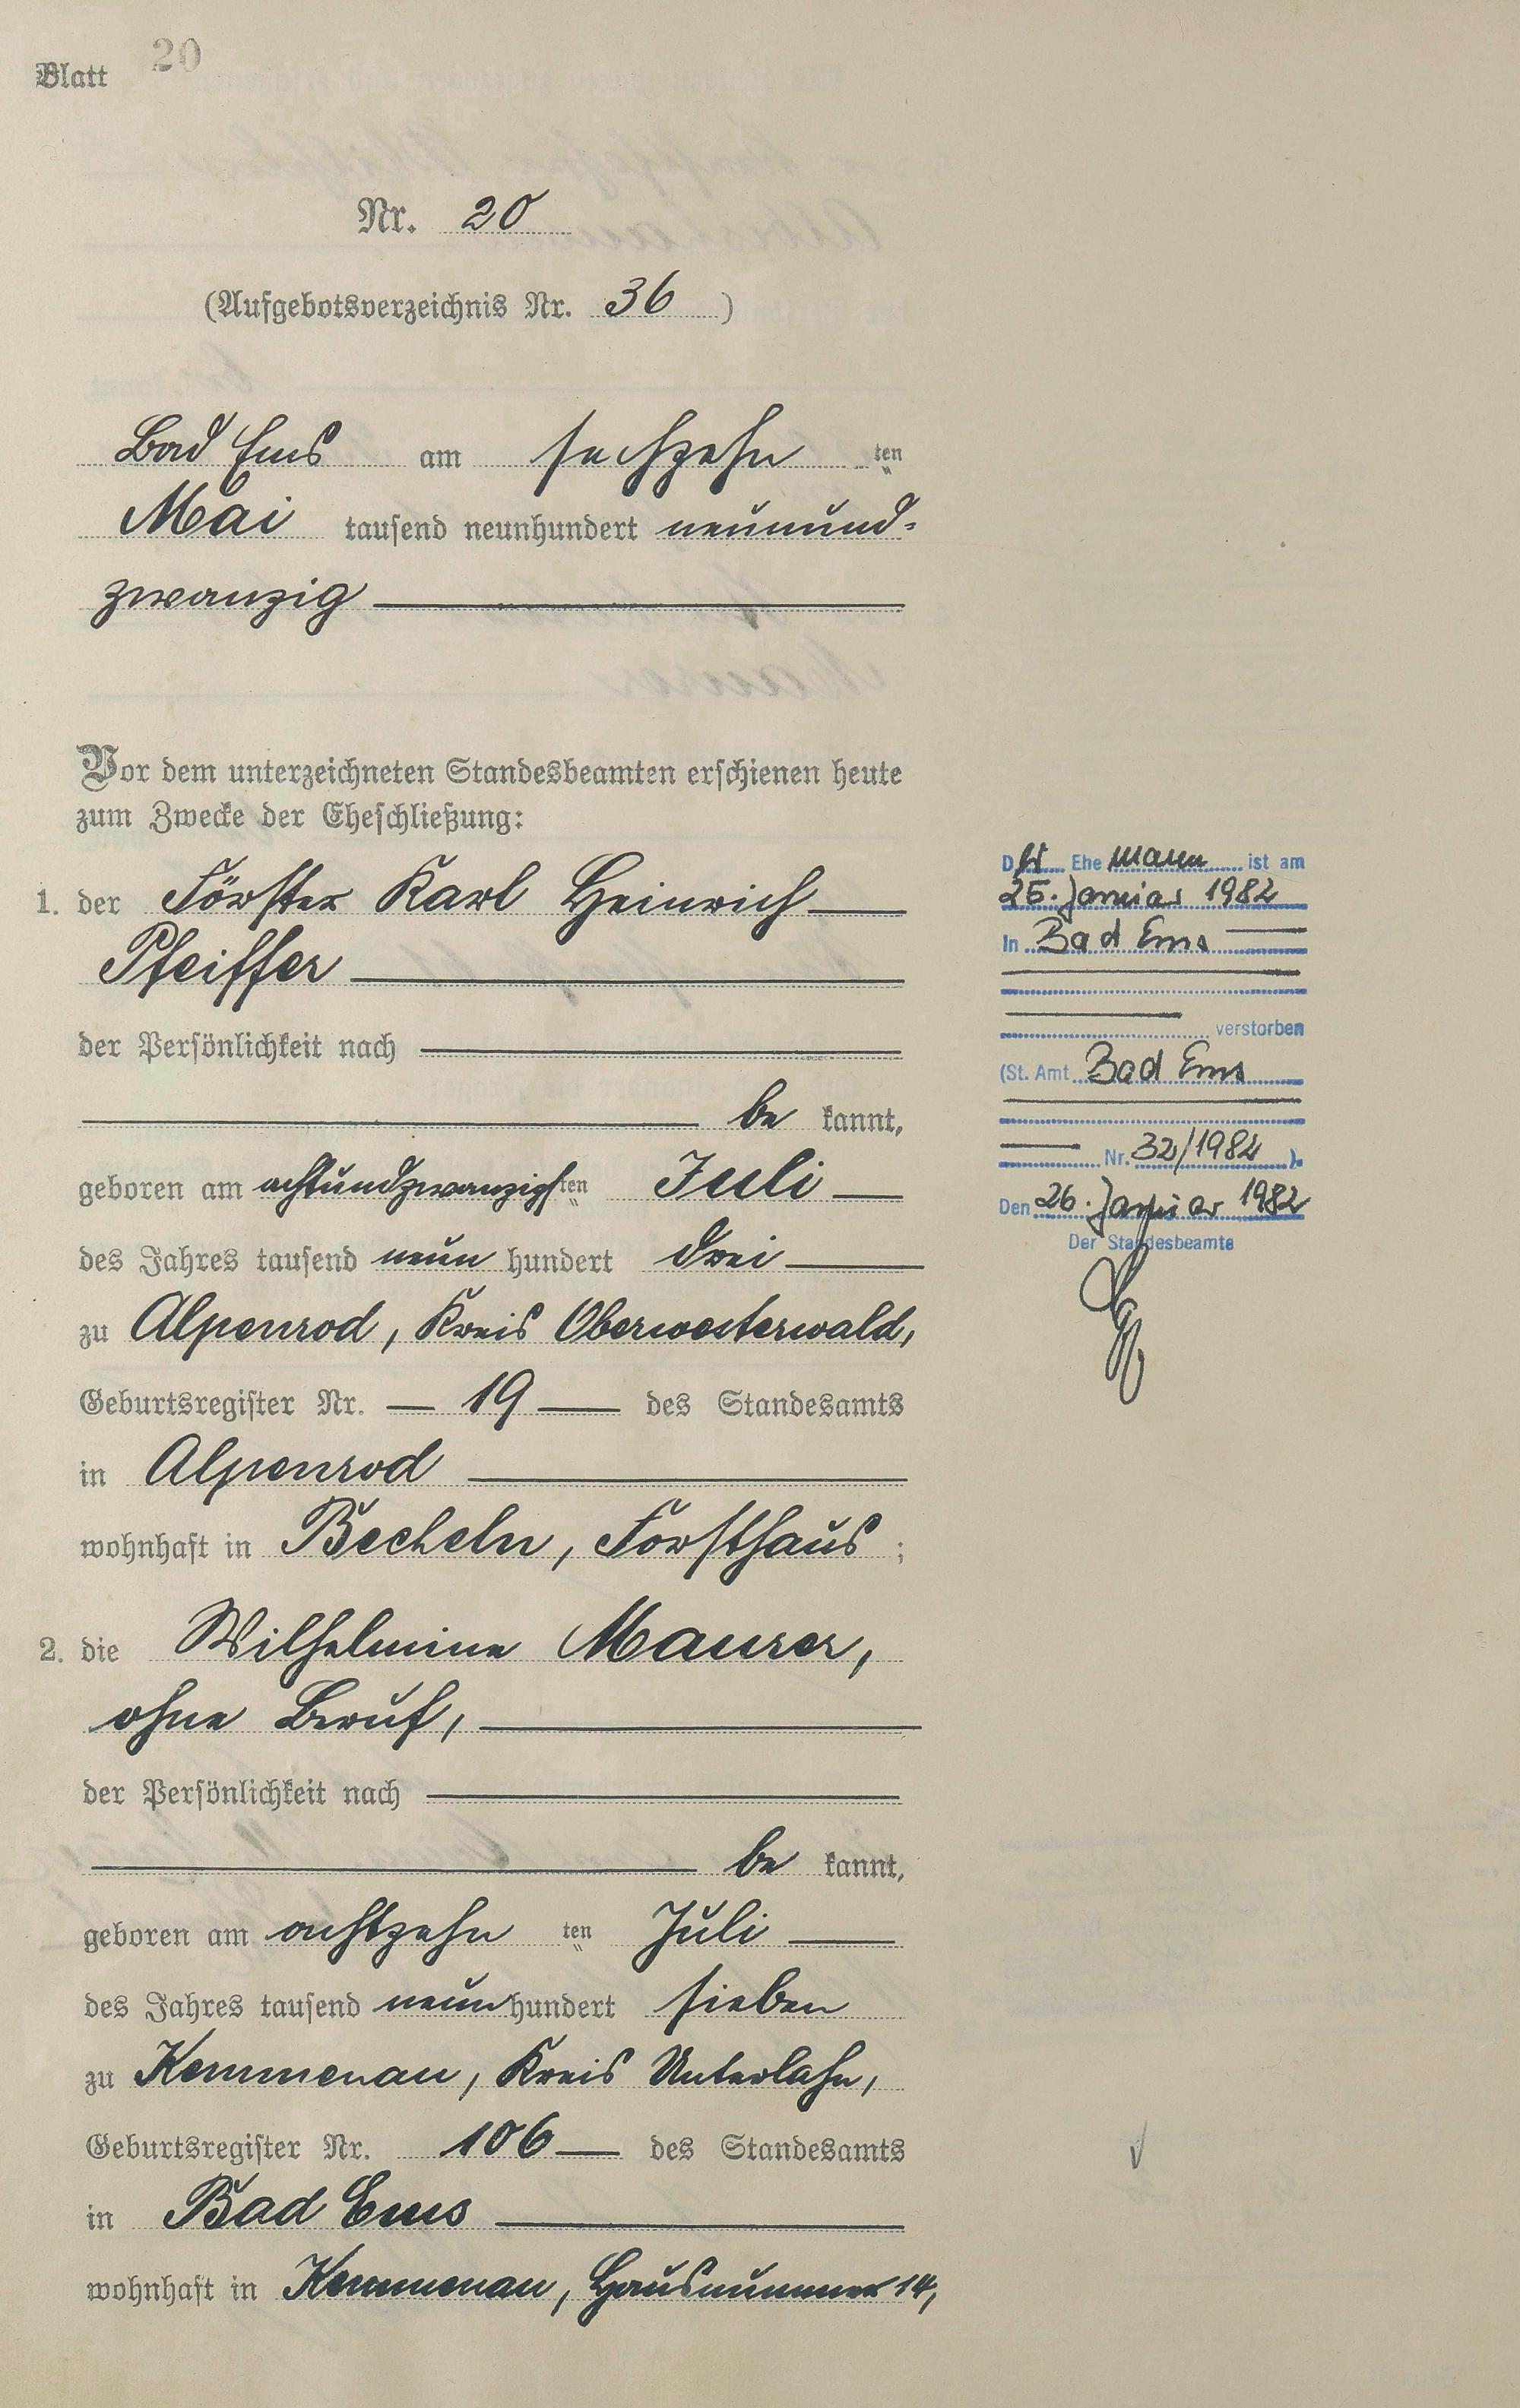 Blatt 20
Nr. 20
(Aufgebotsverzeichnis Nr. 36)
Bad Ems am sechzehn ten
Mai tausend neunhundert neunund-
zwanzig
Vor dem unterzeichneten Standesbeamten erschienen heute
zum Zwecke der Eheschließung:
1. der Förster Karl Heinrich
Pfeiffer
der Persönlichkeit nach
be kannt,
geboren am achtundzwanzigsten Juli
des Jahres tausend neun hundert drei
zu Alpenrod, Kreis Oberwesterwald,
Geburtsregister Nr. 19 des Standesamts
in Alpenrod
wohnhaft in Becheln, Forsthaus;
2. die Wilhelmine Maurer,
ohne Beruf,
der Persönlichkeit nach
be kannt,
geboren am achtzehn ten Juli
des Jahres tausend neun hundert sieben
zu Kemmenau, Kreis Unterlahn,
Geburtsregister Nr. 106 des Standesamts
in Bad Ems
wohnhaft in Kemmenau, Hausnummer 14,
Der Ehemann ist am
25. Januar 1982
In Bad Ems
verstorben
(St. Amt Bad Ems
Nr. 32/1982).
Den 26. Januar 1982
Der Standesbeamte